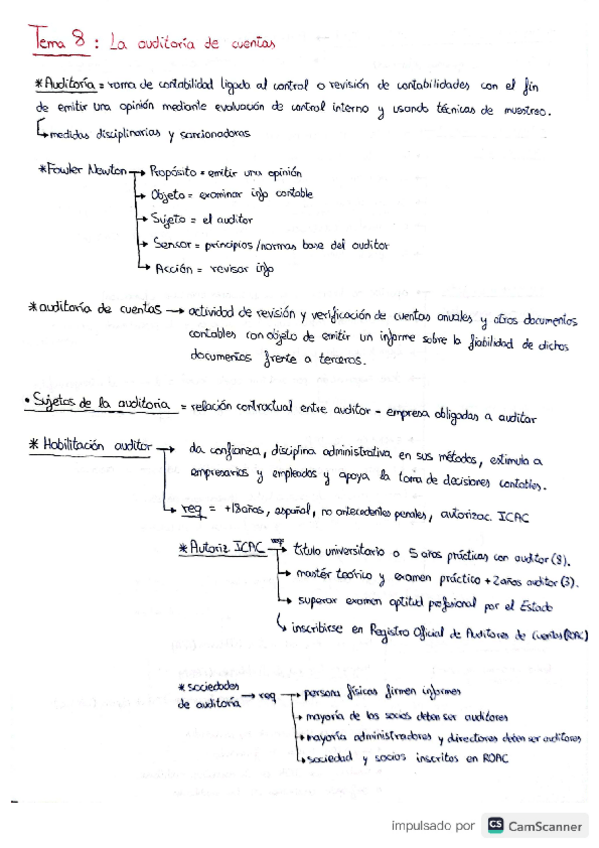 Tema 8 : La auditoría de cuentas
* Auditoría = rama de contabilidad ligado al control o revisión de contabilidades con el fin
de emitir una opinión mediante evaluación de control interno y usando técnicas de muestreo.
↳ medidas disciplinarias y sancionadoras
* Fowler Newton → Propósito = emitir una opinión
→ Objeto = examinar info contable
→ Sujeto = el auditor
→ Sensor = principios/normas base del auditor
→ Acción = revisar info
* auditoría de cuentas → actividad de revisión y verificación de cuentas anuales y otros documentos
contables con objeto de emitir un informe sobre la fiabilidad de dichos
documentos frente a terceros.
• Sujetos de la auditoría = relación contractual entre auditor - empresa obligadas a auditar
* Habilitación auditor → da confianza, disciplina administrativa, en sus métodos, estimula a
empresarios y empleados y apoya la toma de decisiones contables.
→ req = +18 años, español, no antecedentes penales, autorizac. ICAC
* Autoriz ICAC req → título universitario o 5 años prácticas con auditor (8).
→ mastér teórico y examen práctico + 2 años auditor (3).
→ superar examen aptitud profesional por el Estado
↳ inscribirse en Registro Oficial de Auditores de Cuentas (ROAC)
* sociedades
de auditoría → req → persona físicas firmen informes
→ mayoría de los socios deben ser auditores
→ mayoría administradores y directores deben ser auditores
→ sociedad y socios inscritos en ROAC
impulsado por CS CamScanner